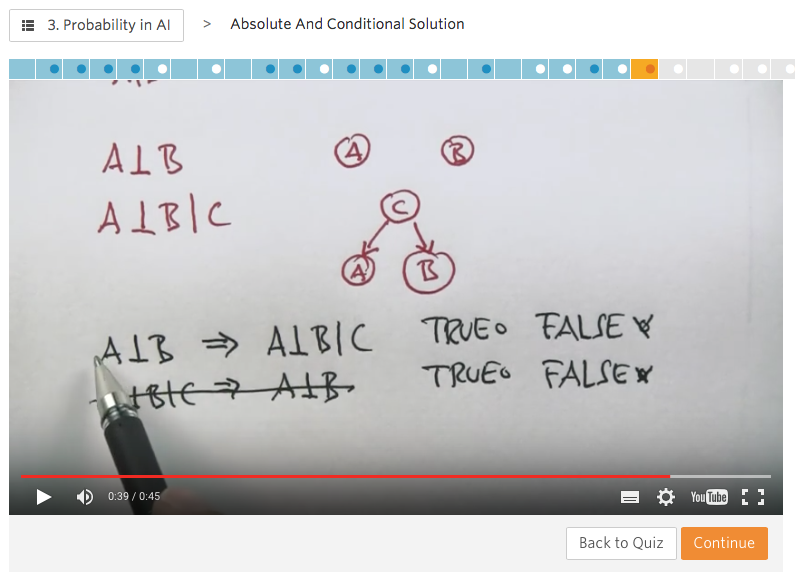 3. Probability in AI > Absolute And Conditional Solution
A⊥B
A B
A⊥B|C
C
A B
A⊥B ⇒ A⊥B|C TRUE FALSE
⊥B|C ⇒ A⊥B TRUE FALSE
0:39 / 0:45
YouTube
Back to Quiz
Continue